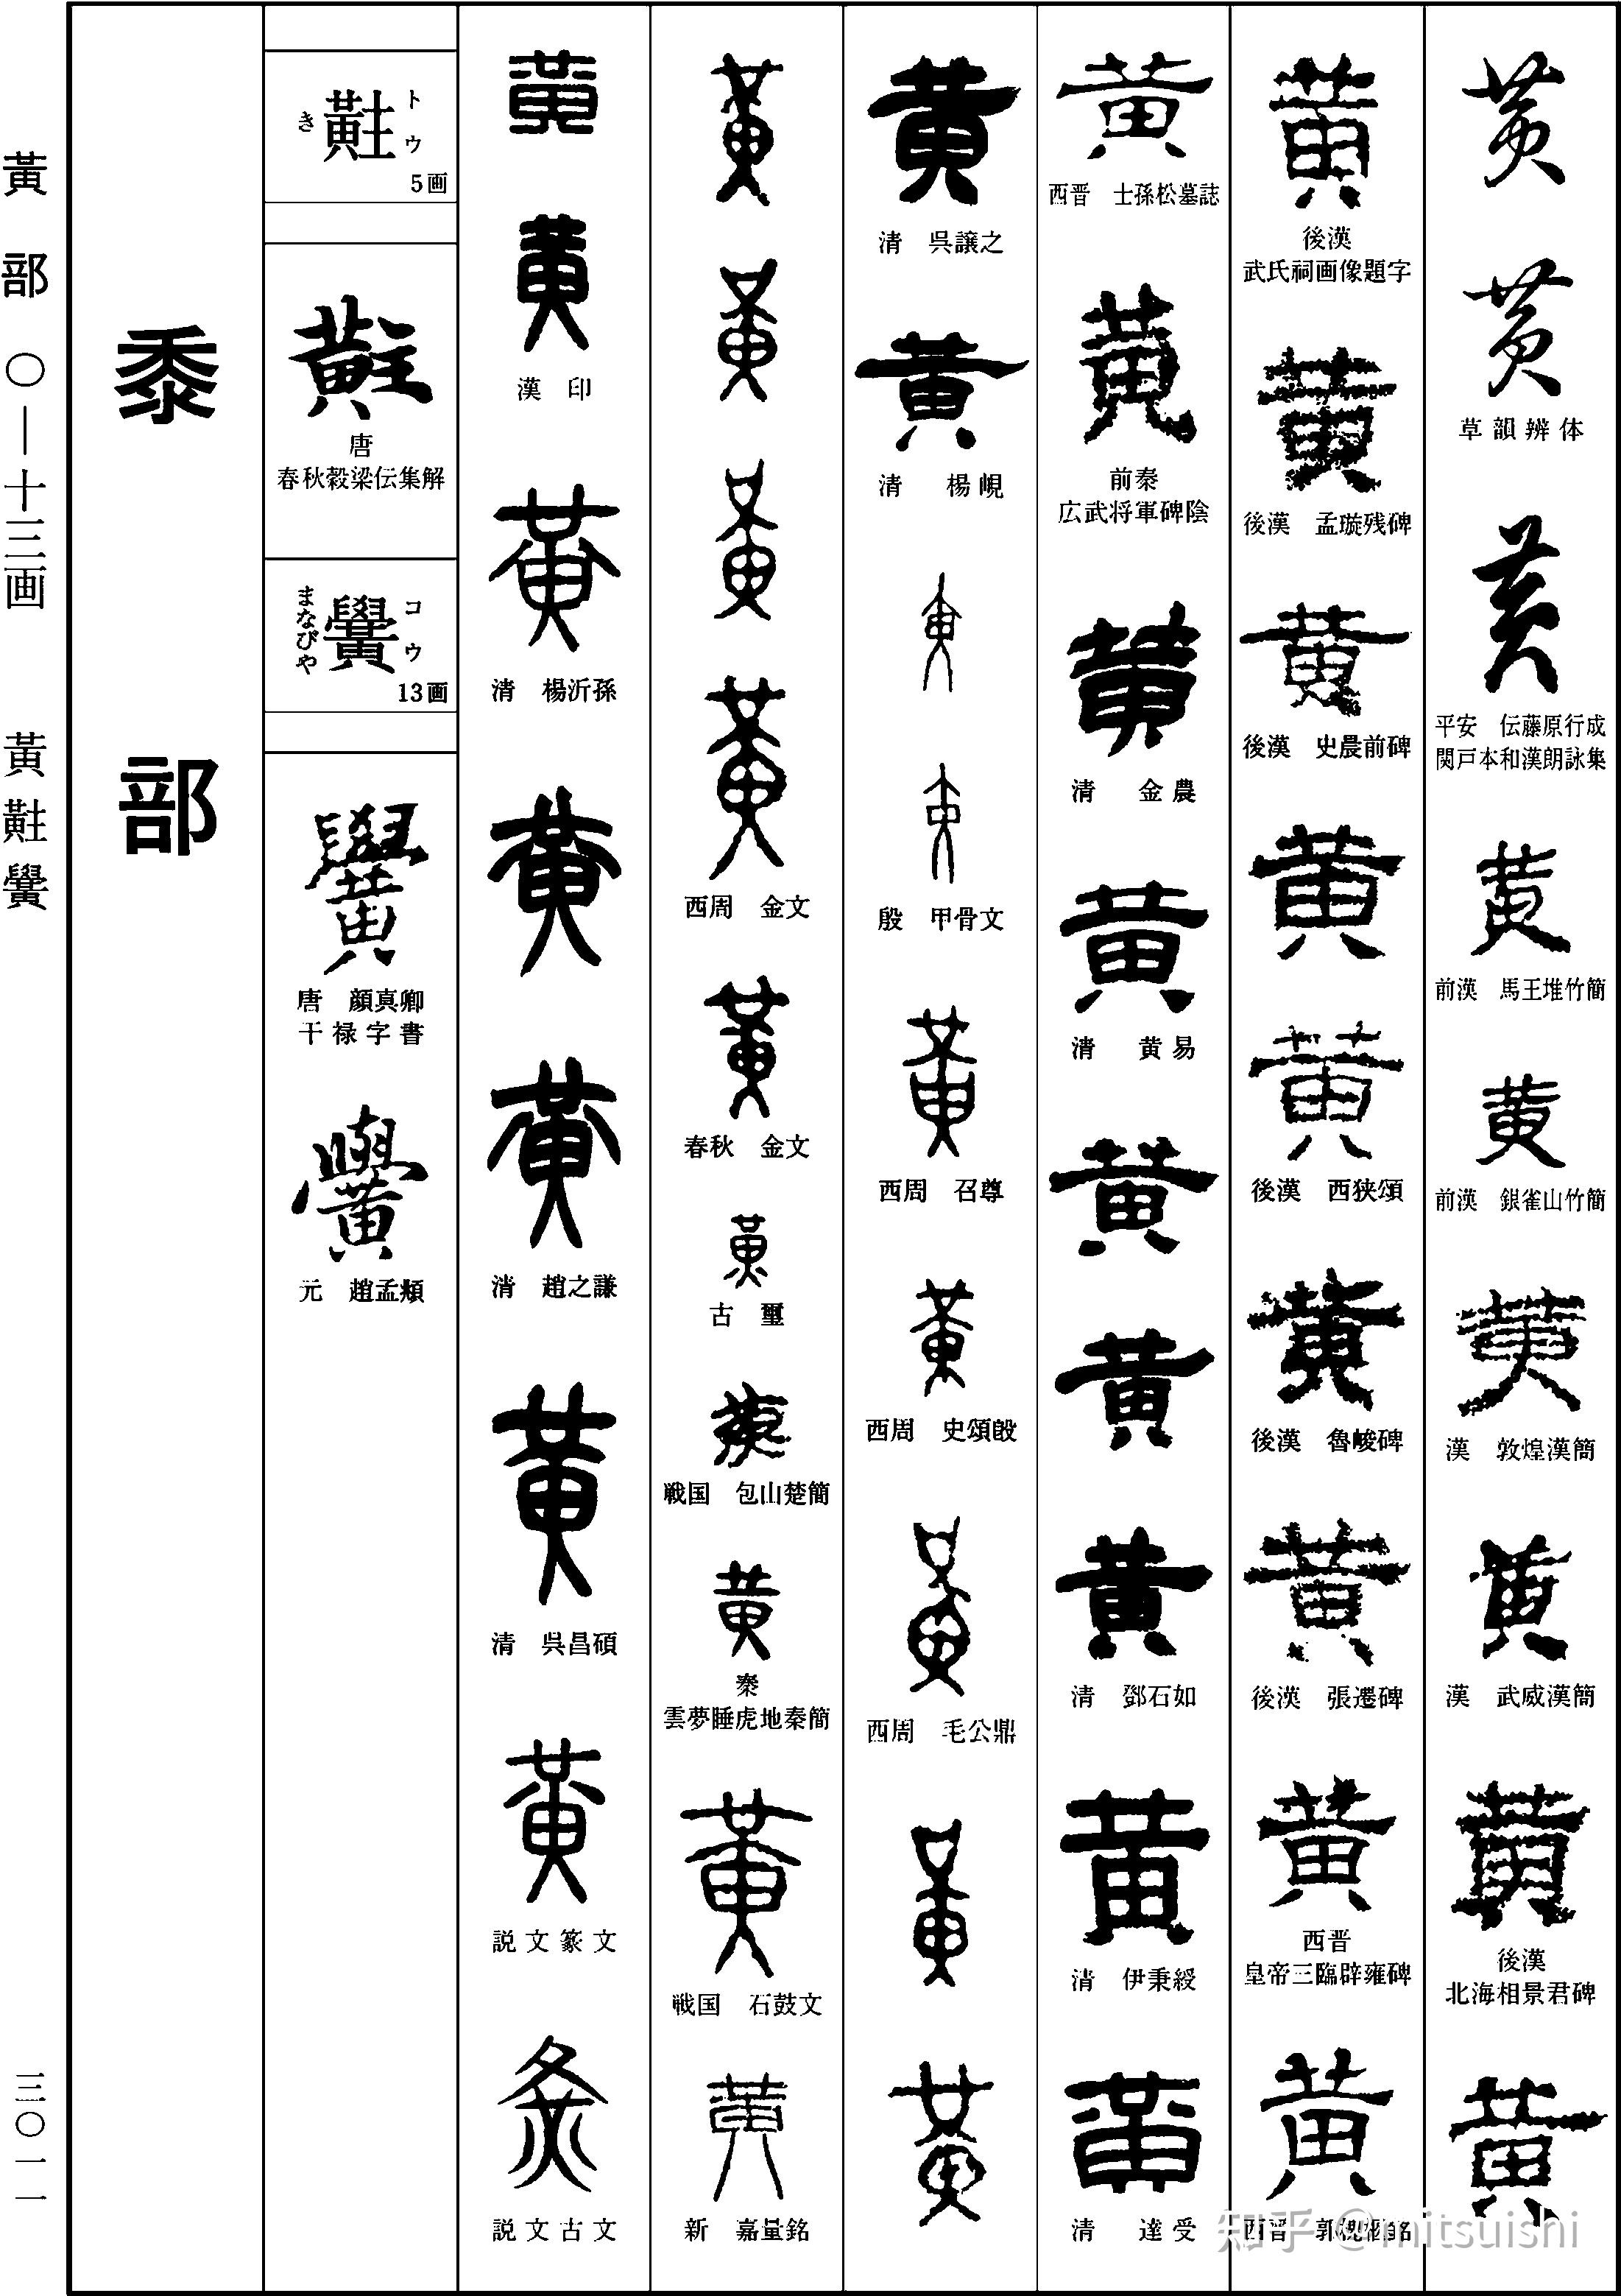 黄
黄
草韻辨体
黄
平安 伝藤原行成
関戸本和漢朗詠集
黄
前漢 馬王堆竹簡
黄
前漢 銀雀山竹簡
黄
漢 敦煌漢簡
黄
漢 武威漢簡
黄
後漢
北海相景君碑
黄
黄
後漢
武氏祠画像題字
黄
後漢 孟璇残碑
黄
後漢 史晨前碑
黄
黄
後漢 西狭頌
黄
後漢 魯峻碑
黄
後漢 張遷碑
黄
西晋
皇帝三臨辟雍碑
黄
西晋 郭槐柩銘
黄
西晋 士孫松墓誌
黄
前秦
広武将軍碑陰
黄
清 金農
黄
清 黄易
黄
黄
黄
清 鄧石如
黄
清 伊秉綬
黄
清 達受
黄
清 呉譲之
黄
清 楊峴
黄
黄
殷 甲骨文
黄
西周 召尊
黄
西周 史頌𣪘
黄
西周 毛公鼎
黄
黄
黄
黄
黄
黄
西周 金文
黄
春秋 金文
黄
古璽
黄
戦国 包山楚簡
黄
秦
雲夢睡虎地秦簡
黄
戦国 石鼓文
黄
新 嘉量銘
黄
黄
漢印
黄
清 楊沂孫
黄
黄
清 趙之謙
黄
清 呉昌碩
黄
説文篆文
黄
説文古文
黈 トウ き 5画
黈
唐
春秋穀梁伝集解
黌 コウ まなびや 13画
黌
唐 顔真卿
干禄字書
黌
元 趙孟頫
黍部
黃部 〇—十三画 黃黈黌
三〇一一
知乎 @mitsuishi